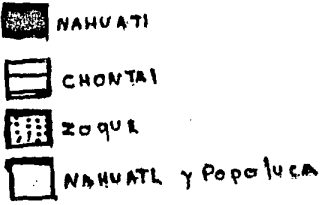 NAHUATl
CHONTAl
ZOQUE
NAHUATL y Popoluca